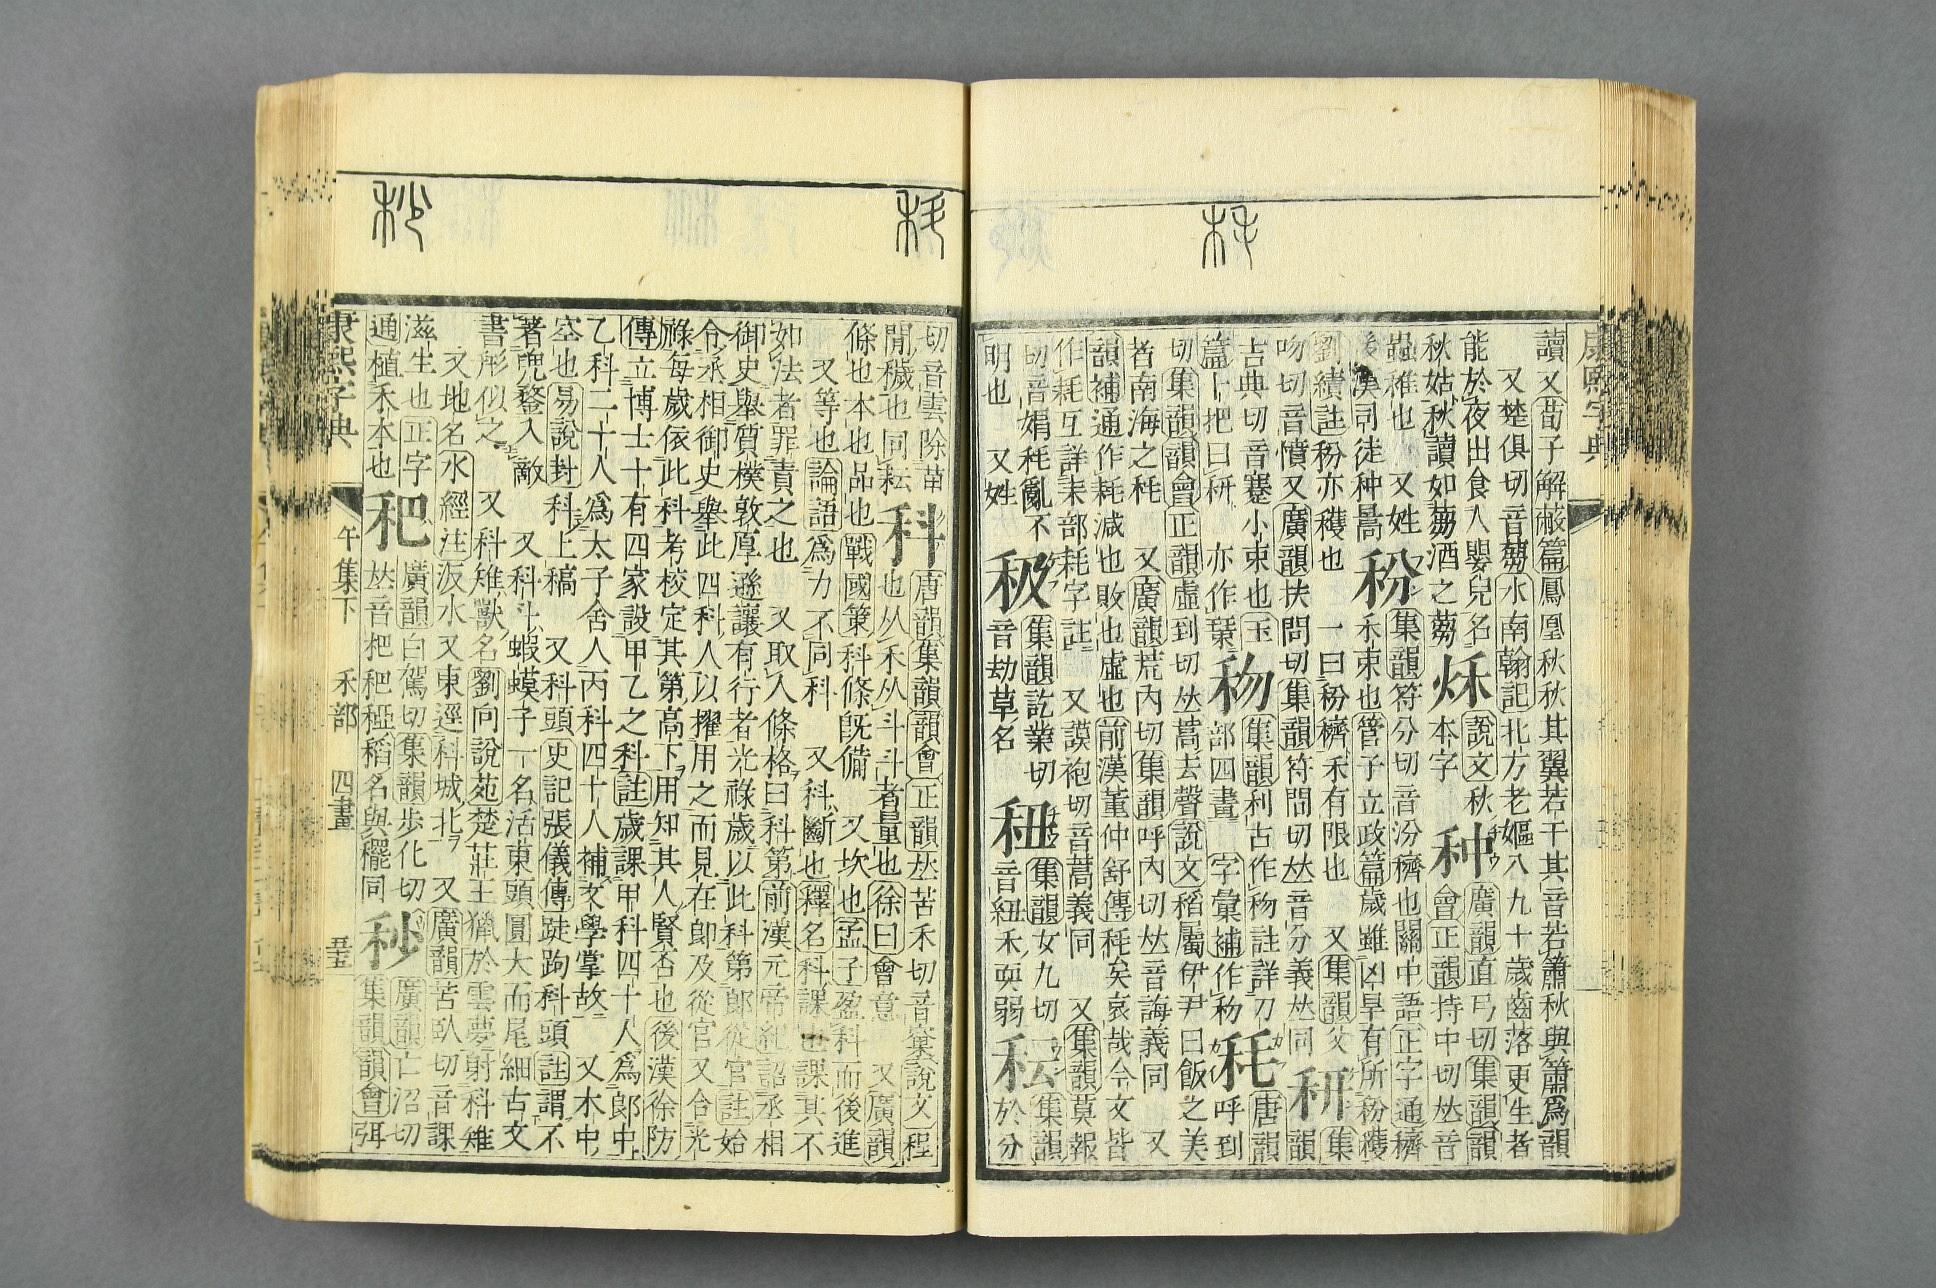 康熙字典
讀又荀子解蔽篇鳳凰秋秋其翼若干其音若簫秋與簫爲韻
又楚俱切音芻水南翰記北方老嫗八九十歲齒落更生者
能於夜出食人嬰兒名
秋姑秋讀如芻酒之芻
秌
說文秋
本字
种
廣韻直弓切集韻韻
會正韻持中切𠀤音
蟲稚也 又姓
後漢司徒种暠
秎
集韻符分切音汾穧也關中語正字通穧
禾束也管子立政篇歲雖凶旱有所秎穫
劉績註秎亦穫也 一曰秎穧禾有限也 又集韻父
吻切音憤又廣韻扶問切集韻符問切𠀤音分義𠀤同
䄯
集
韻
古典切音蹇小束也玉
篇十把曰䄯 亦作䅐
集韻利古作註詳刀
部四畫 字彙補作
秏
唐韻
呼到
切集韻韻會正韻虛到切𠀤蒿去聲說文稻屬伊尹曰飯之美
者南海之秏 又廣韻荒內切集韻呼內切𠀤音誨義同 又
韻補通作耗減也敗也虛也前漢董仲舒傳秏矣哀哉今文皆
作耗互詳耒部耗字註 又謨袍切音蒿義同 又集韻莫報
切音媢秏亂不
明也 又姓
集韻訖業切
音劫草名
集韻女九切
音紐禾耎弱
秐
集韻
於分
切音雲除苗
閒穢也同耘
科
唐韻集韻韻會正韻𠀤苦禾切音窠說文程
也从禾从斗斗者量也徐曰會意 又廣韻
條也本也品也戰國策科條旣備 又坎也孟子盈科而後進
又等也論語爲力不同科 又科斷也釋名科課也課其不
如法者罪責之也 又取人條格曰科第前漢元帝紀詔丞相
御史舉質樸敦厚遜讓有行者光祿歲以此科第郞從官註始
令丞相御史舉此四科人以擢用之而見在郞及從官又合光
祿每歲依此科考校定其第高下用知其人賢否也後漢徐防
傳立博士十有四家設甲乙之科註歲課甲科四十人爲郞中
乙科二十人爲太子舍人丙科四十人補文學掌故 又木中
空也易說卦科上稿 又科頭史記張儀傳跿跔科頭註謂不
著兜鍪入敵 又科斗蝦蟆子一名活東頭圓大而尾細古文
書形似之 又科雉獸名劉向說苑楚莊王獵於雲夢射科雉
又地名水經注汳水又東逕科城北 又廣韻苦臥切音課
滋生也正字
通植禾本也
秅
廣韻白駕切集韻步化切
𠀤音杷䆉稏稻名與䆉同
秒
廣韻亡沼切
集韻韻會弭
康熙字典
午集下
禾部
四畫